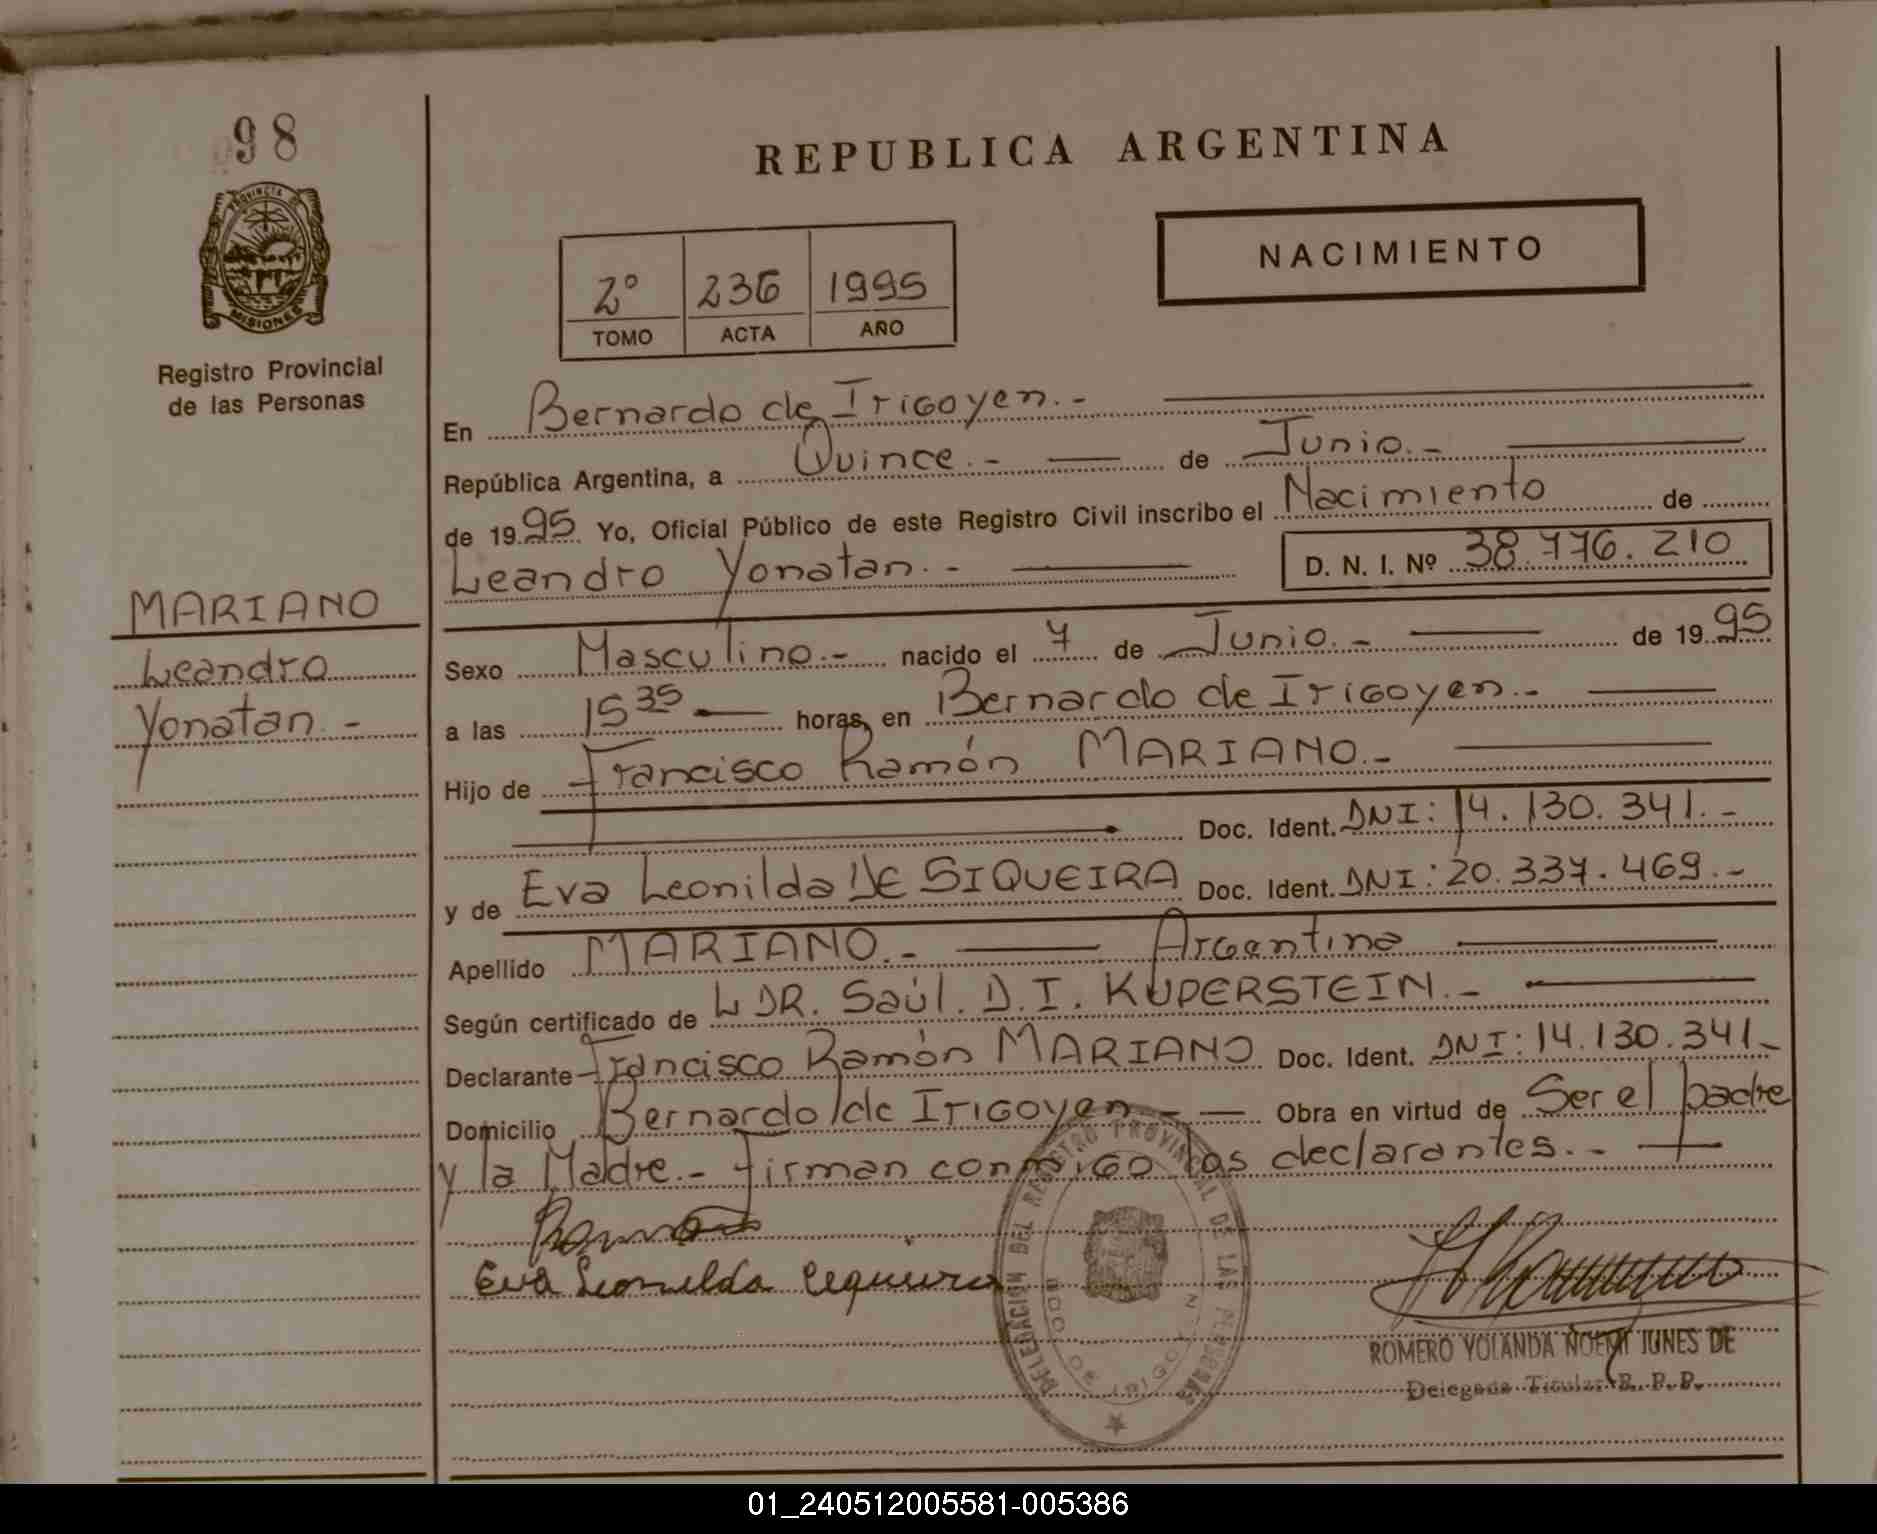 98
PROVINCIA DE
MISIONES
Registro Provincial
de las Personas
MARIANO
Leandro
Yonatan.-
REPUBLICA ARGENTINA
NACIMIENTO
2º 236 1995
TOMO ACTA AÑO
En Bernardo de Irigoyen.-
República Argentina, a Quince.- de Junio.-
de 1995 Yo, Oficial Público de este Registro Civil inscribo el Nacimiento de
Leandro Yonatan.- D. N. I. Nº 38.776.210
Sexo Masculino.- nacido el 7 de Junio.- de 1995
a las 15 35 horas, en Bernardo de Irigoyen.-
Hijo de Francisco Ramón MARIANO.-
Doc. Ident. DNI: 14.130.341.-
y de Eva Leonilda DE SIQUEIRA Doc. Ident. DNI: 20.337.469.-
Apellido MARIANO.- Argentina
Según certificado de L DR. Saúl. D. I. KUPERSTEIN.-
Declarante Francisco Ramón MARIANO Doc. Ident. DNI: 14.130.341-
Domicilio Bernardo de Irigoyen - Obra en virtud de Ser el padre
y la Madre.- Firman conmigo los declarantes.-
Eva Leonilda
DELEGACION DEL REGISTRO PROVINCIAL DE LAS PERSONAS
BDO. DE IRIGOYEN
ROMERO YOLANDA NOEMI JUNES DE
Delegada Titular R. P. P.
01_240512005581-005386